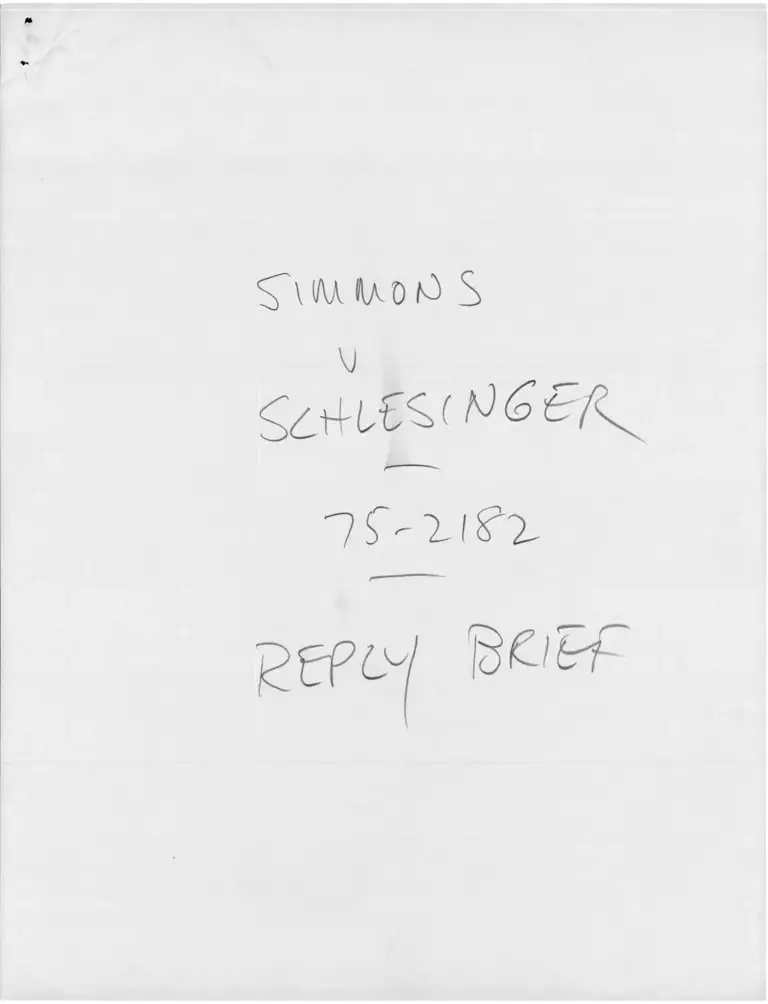 SIMMONS
V
SCHLESINGER
75-2182
REPLY BRIEF